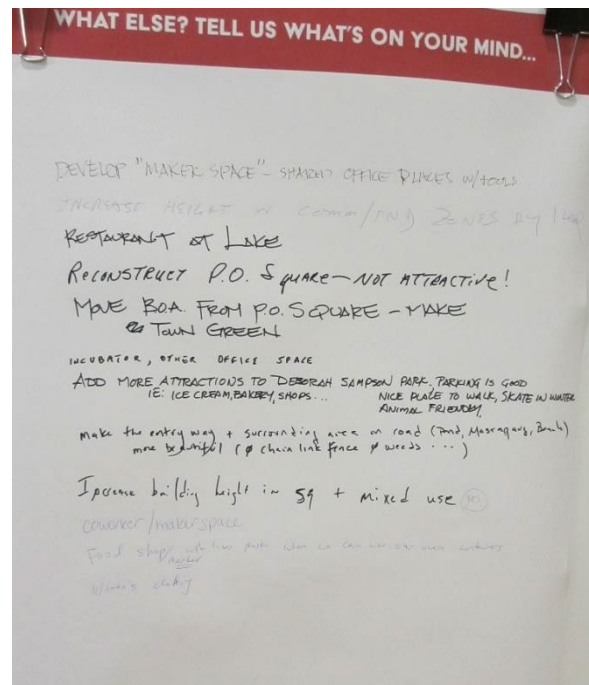 WHAT ELSE? TELL US WHAT'S ON YOUR MIND...
DEVELOP "MAKER SPACE" - SHARED OFFICE PLACES W/TOOLS
INCREASE HEIGHT IN COMM/IND ZONES BY 1
RESTAURANT AT LAKE
RECONSTRUCT P.O. SQUARE - NOT ATTRACTIVE!
MOVE B.O.A. FROM P.O. SQUARE - MAKE
TOWN GREEN
INCUBATOR, OTHER OFFICE SPACE
ADD MORE ATTRACTIONS TO DEBORAH SAMPSON PARK. PARKING IS GOOD
IE: ICE CREAM, BAKERY, SHOPS... NICE PLACE TO WALK, SKATE IN WINTER
ANIMAL FRIENDLY
make the entry way + surrounding area on road (Pond, Massapoag, Beach)
more beautiful (∅ chain link fence ∅ weeds ...)
Increase building height in sq + mixed use yes
coworker/makerspace
Food shop with we can use our own containers
market
Women's clothing